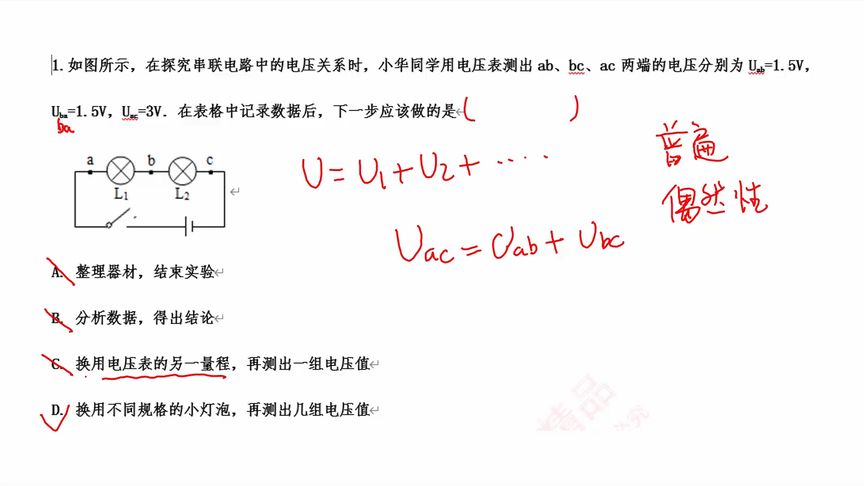 1.如图所示，在探究串联电路中的电压关系时，小华同学用电压表测出 ab、bc、ac 两端的电压分别为 Uab=1.5V，
Uba=1.5V，Uac=3V．在表格中记录数据后，下一步应该做的是（ ）
ba
a b c
L1 L2
U=U1+U2+....
Uac=Uab+Ubc
普遍
偶然性
A. 整理器材，结束实验
B. 分析数据，得出结论
C. 换用电压表的另一量程，再测出一组电压值
D. 换用不同规格的小灯泡，再测出几组电压值
精品